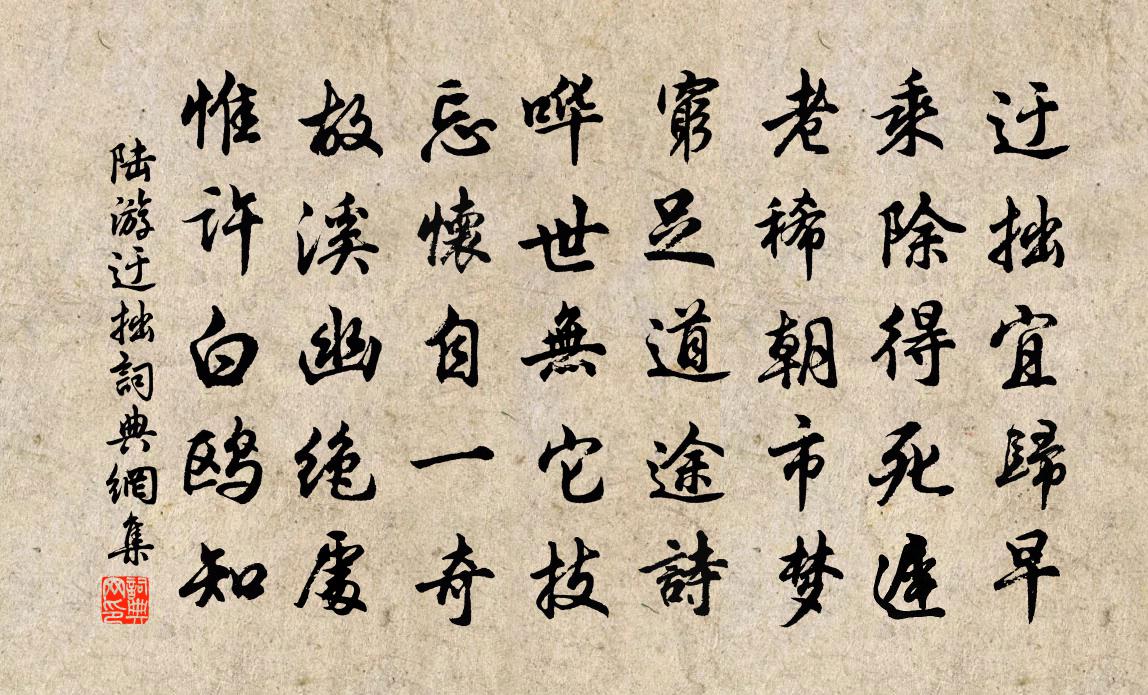 迂拙宜歸早
乘除得死遲
老稀朝市梦
窮足道途詩
哗世無它技
忘懷自一奇
故溪幽绝處
惟許白鸥知
陆游迂拙詞典網集
詞典
网印